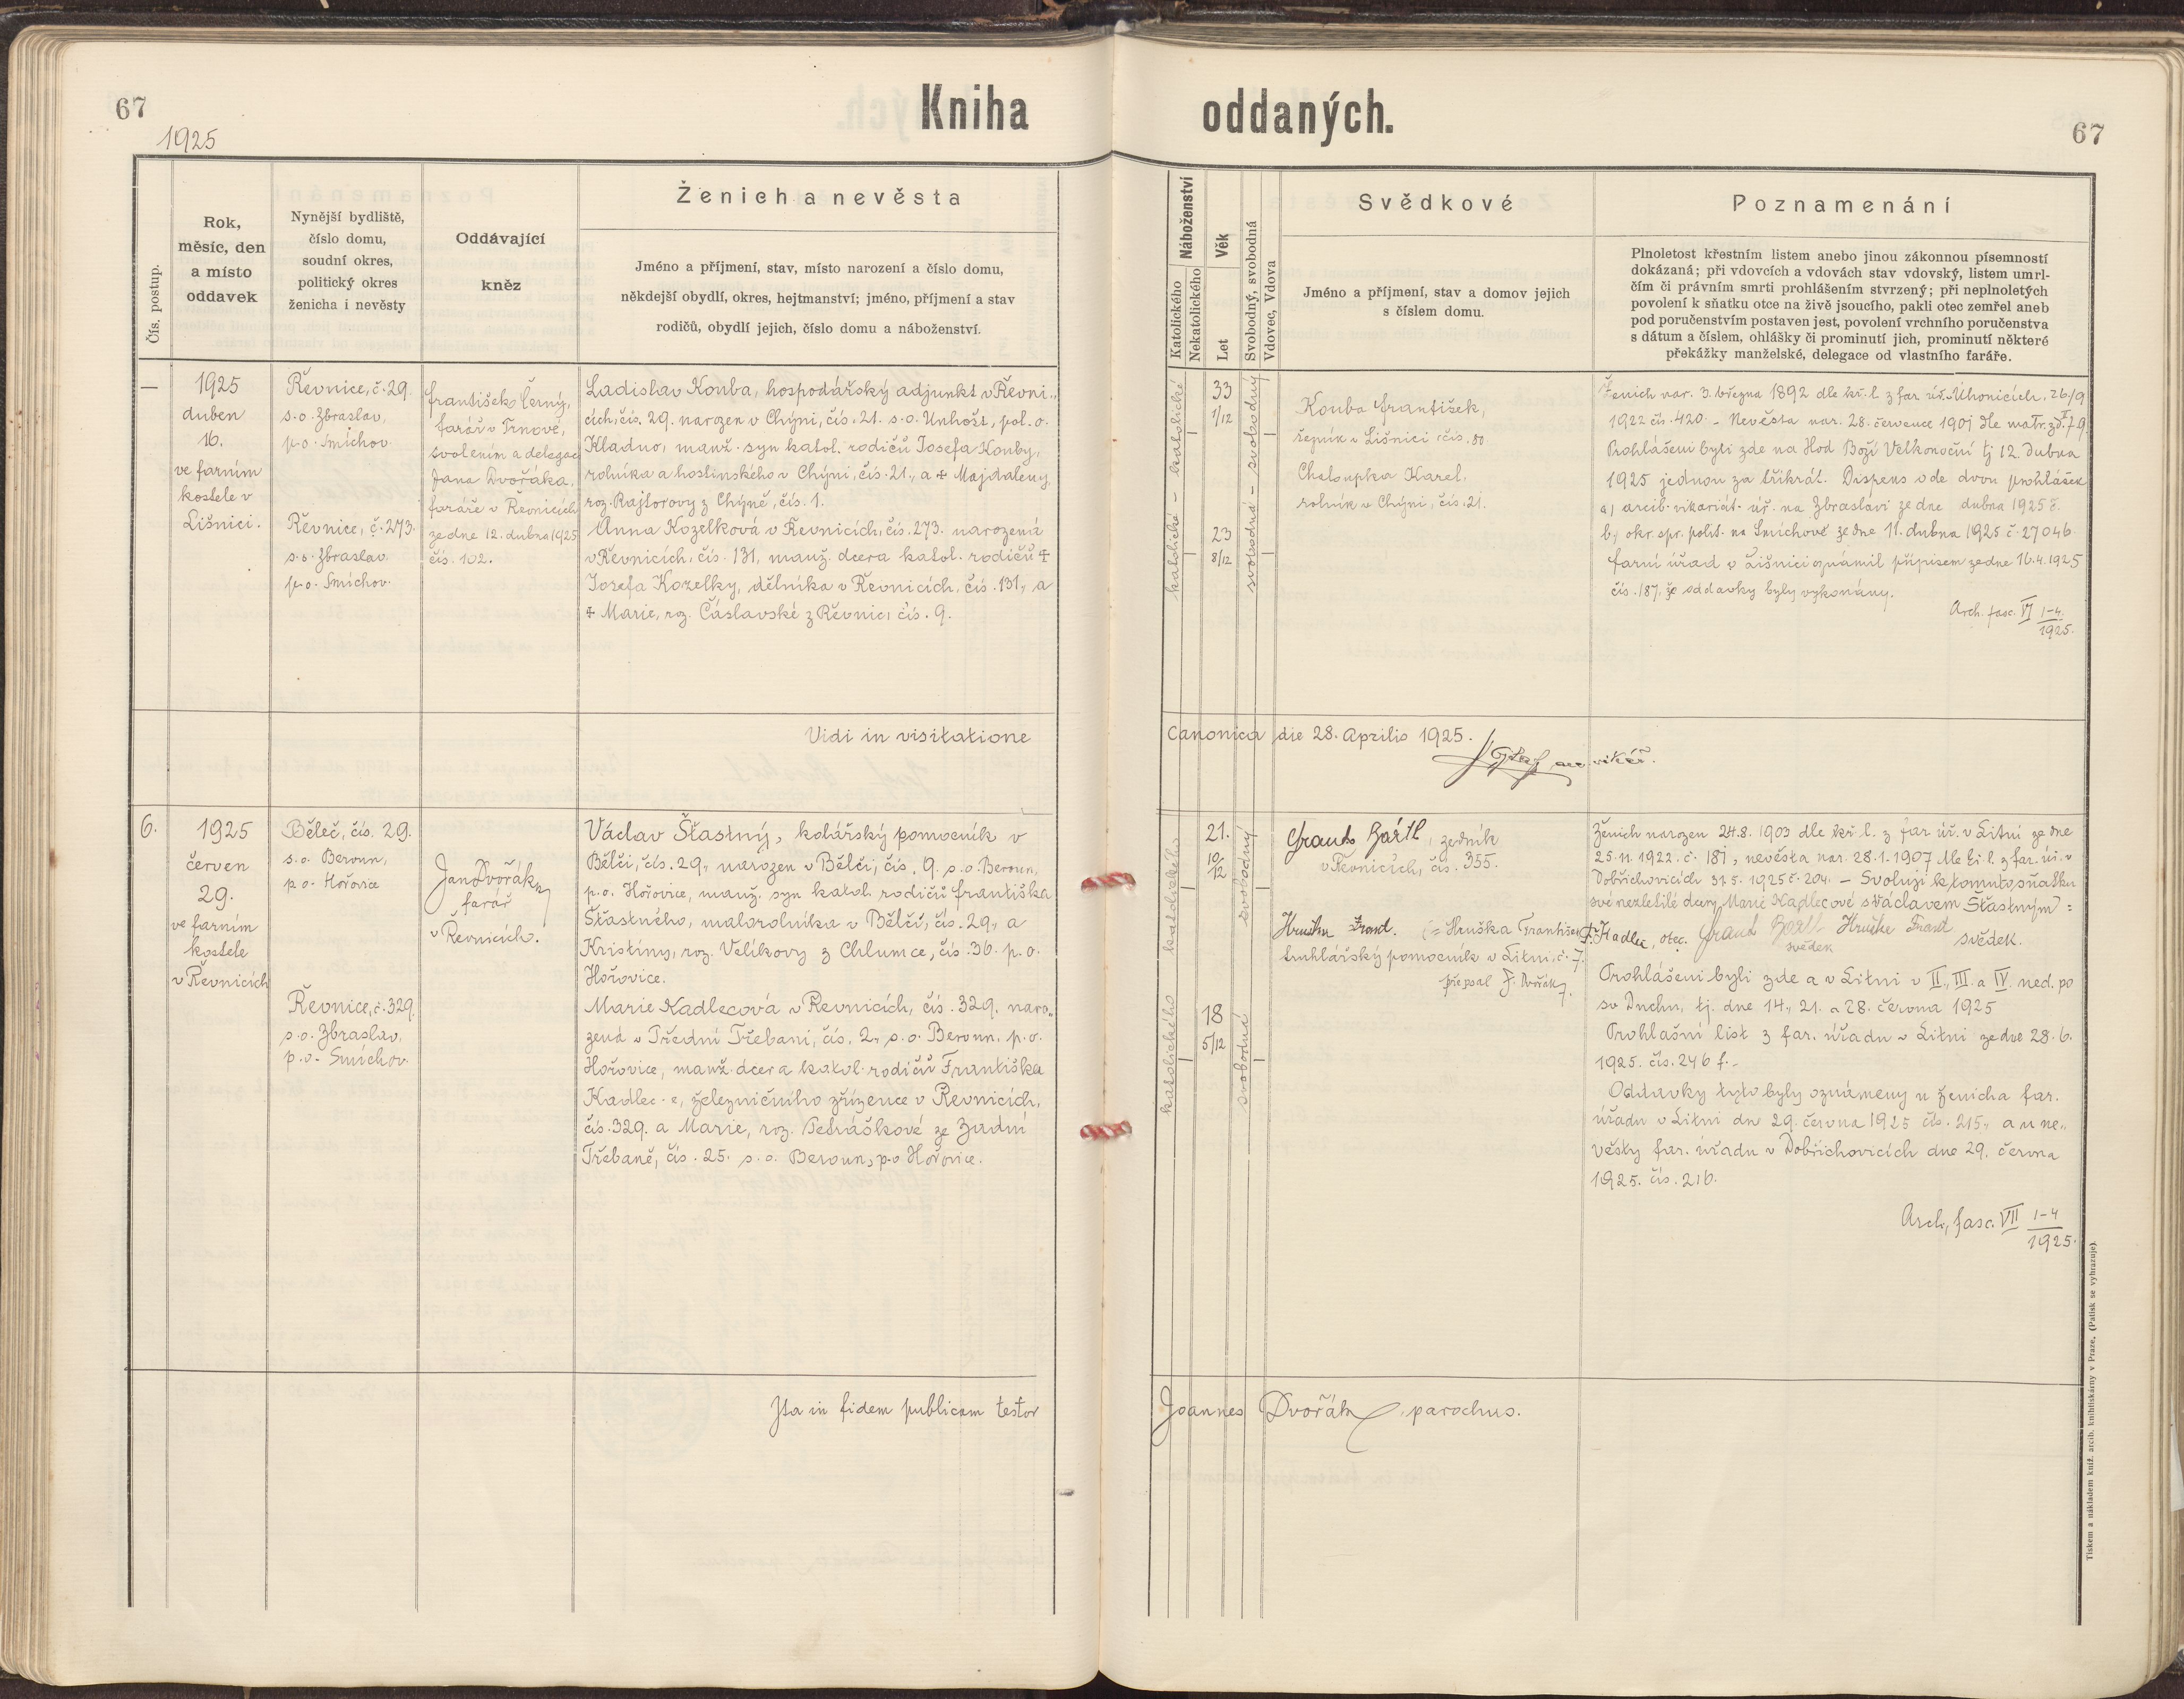 67
1925
Kniha
oddaných.
67
Čís. postup.
Rok,
měsíc, den
a místo
oddavek
Nynější bydliště,
číslo domu,
soudní okres,
politický okres
ženicha i nevěsty
Oddávající
kněz
Ženich a nevěsta
Jméno a příjmení, stav, místo narození a číslo domu,
někdejší obydlí, okres, hejtmanství; jméno, příjmení a stav
rodičů, obydlí jejich, číslo domu a náboženství.
Náboženství
Katolického
Nekatolického
Věk
Let
Svobodný, svobodná
Vdovec, Vdova
Svědkové
Jméno a příjmení, stav a domov jejich
s číslem domu.
Poznamenání
Plnoletost křestním listem anebo jinou zákonnou písemností
dokázaná; při vdovcích a vdovách stav vdovský, listem umrl-
čím či právním smrti prohlášením stvrzený; při neplnoletých
povolení k sňatku otce na živě jsoucího, pakli otec zemřel aneb
pod poručenstvím postaven jest, povolení vrchního poručenstva
s dátum a číslem, ohlášky či prominutí jich, prominutí některé
překážky manželské, delegace od vlastního faráře.
1925
duben
16.
ve farním
kostele v
Lišnici.
Řevnice, č. 29.
s. o. Zbraslav,
p. o. Smíchov.
Řevnice, č. 273.
s. o. Zbraslav.
p. o. Smíchov.
František Černý,
farář v Trnové,
svolením a delegací
Jana Dvořáka,
faráře v Řevnicích
ze dne 12. dubna 1925
čís. 102.
Ladislav Kouba, hospodářský adjunkt v Řevni„
cích, čís. 29. narozen v Chýni, čís. 21. s. o. Unhošt, pol. o.
Kladno, manž. syn katol. rodičů Josefa Kouby,
rolníka a hostinského v Chýni, čís. 21., a + Majdaleny,
roz. Rajtorovy z Chýně, čís. 1.
Anna Kozelková v Řevnicích, čís. 273. narozená
v Řevnicích, čís. 131, manž. dcera katol. rodičů +
Josefa Kozelky, dělníka v Řevnicích, čís. 131., a
+ Marie, roz. Čáslavské z Řevnic, čís. 9.
katolické – katolické
33
1/12
23
8/12
svobodná – svobodný
Kouba František,
řezník v Lišnici, čís. 80
Chaloupka Karel,
rolník v Chýni, čís. 21.
Ženich nar. 3. března 1892 dle kř. l. z far úř. v Úhonicích, 26/9
1922 čís. 420. – Nevěsta nar. 28. července 1901 dle matr. zd.
Prohlášeni byli zde na Hod Boží Velkonoční tj 12. dubna
1925 jednou za třikrát. Dispens ode dvou prohlášek
a) arcib. vikariát. úř. na Zbraslavi ze dne dubna 1925 č.
b) okr. spr. polit. na Smíchově ze dne 11. dubna 1925 č. 27046
Farní úřad v Lišnici oznámil přípisem ze dne 16. 4. 1925
čís. 187, že oddavky byly vykonány.
Arch. fasc. VI 1–4.
1925.
Vidi in visitatione
Canonica die 28. Aprilis 1925.
vikář.
6.
1925
červen
29.
ve farním
kostele
v Řevnicích
Běleč, čís. 29.
s. o. Beroun,
p. o. Hořovice
Řevnice, č. 329.
s. o. Zbraslav,
p. o. Smíchov.
Jan Dvořák,
farář
v Řevnicích.
Václav Šťastný, kolářský pomocník v
Bělči, čís. 29., narozen v Bělči, čís. 9. s. o. Beroun,
p. o. Hořovice, manž. syn katol. rodičů Františka
Šťastného, malorolníka v Bělči, čís. 29., a
Kristiny, roz. Velíkovy z Chlumce, čís. 36. p. o.
Hořovice.
Marie Kadlecová v Řevnicích, čís. 329. naro„
zená v Přední Třebani, čís. 2., s. o. Beroun. p. o.
Hořovice, manž. dcera katol. rodičů Františka
Kadlec e, železničního zřízence v Řevnicích,
čís. 329. a Marie, roz. Petráškové ze Zadní
Třebaně, čís. 25. s. o. Beroun, p. o. Hořovice.
katolického katolického
21.
10/12
18
5/12
svobodný
svobodná
Bártl, zedník
v Řevnicích, čís. 355.
Hruška Frant. (= Hruška František)
truhlářský pomocník v Litni, č. 7.
přepsal J. Dvořák.
Ženich narozen 24. 8. 1903 dle kř. l. z far úř. v Litni ze dne
25. 11. 1922. č. 181, nevěsta nar. 28. 1. 1907 dle kř. l. z far. úř. v
Dobřichovicích 31. 5. 1925 č. 204. – Svoluji k tomuto sňatku
své nezletilé dcery Marie Kadlecové s Václavem Šťastným =
Fr. Kadlec, otec. Bártl Hruška Frant
svědek svědek.
Prohlášeni byli zde a v Litni v II., III. a IV. ned. po
sv Duchu, tj. dne 14., 21. a 28. června 1925
Prohlašní list z far. úřadu v Litni ze dne 28. 6.
1925. čís. 246 f. –
Oddavky tyto byly oznámeny u ženicha far.
úřadu v Litni dne 29. června 1925 čís. 215., a u ne„
věsty far. úřadu v Dobřichovicích dne 29. června
1925. čís. 216.
Arch. fasc. VII 1–4
1925.
Ita in fidem publicam testor
Joannes Dvořák, parochus.
Tiskem a nákladem kníž. arcib. knihtiskárny v Praze. (Patisk se vyhrazuje).